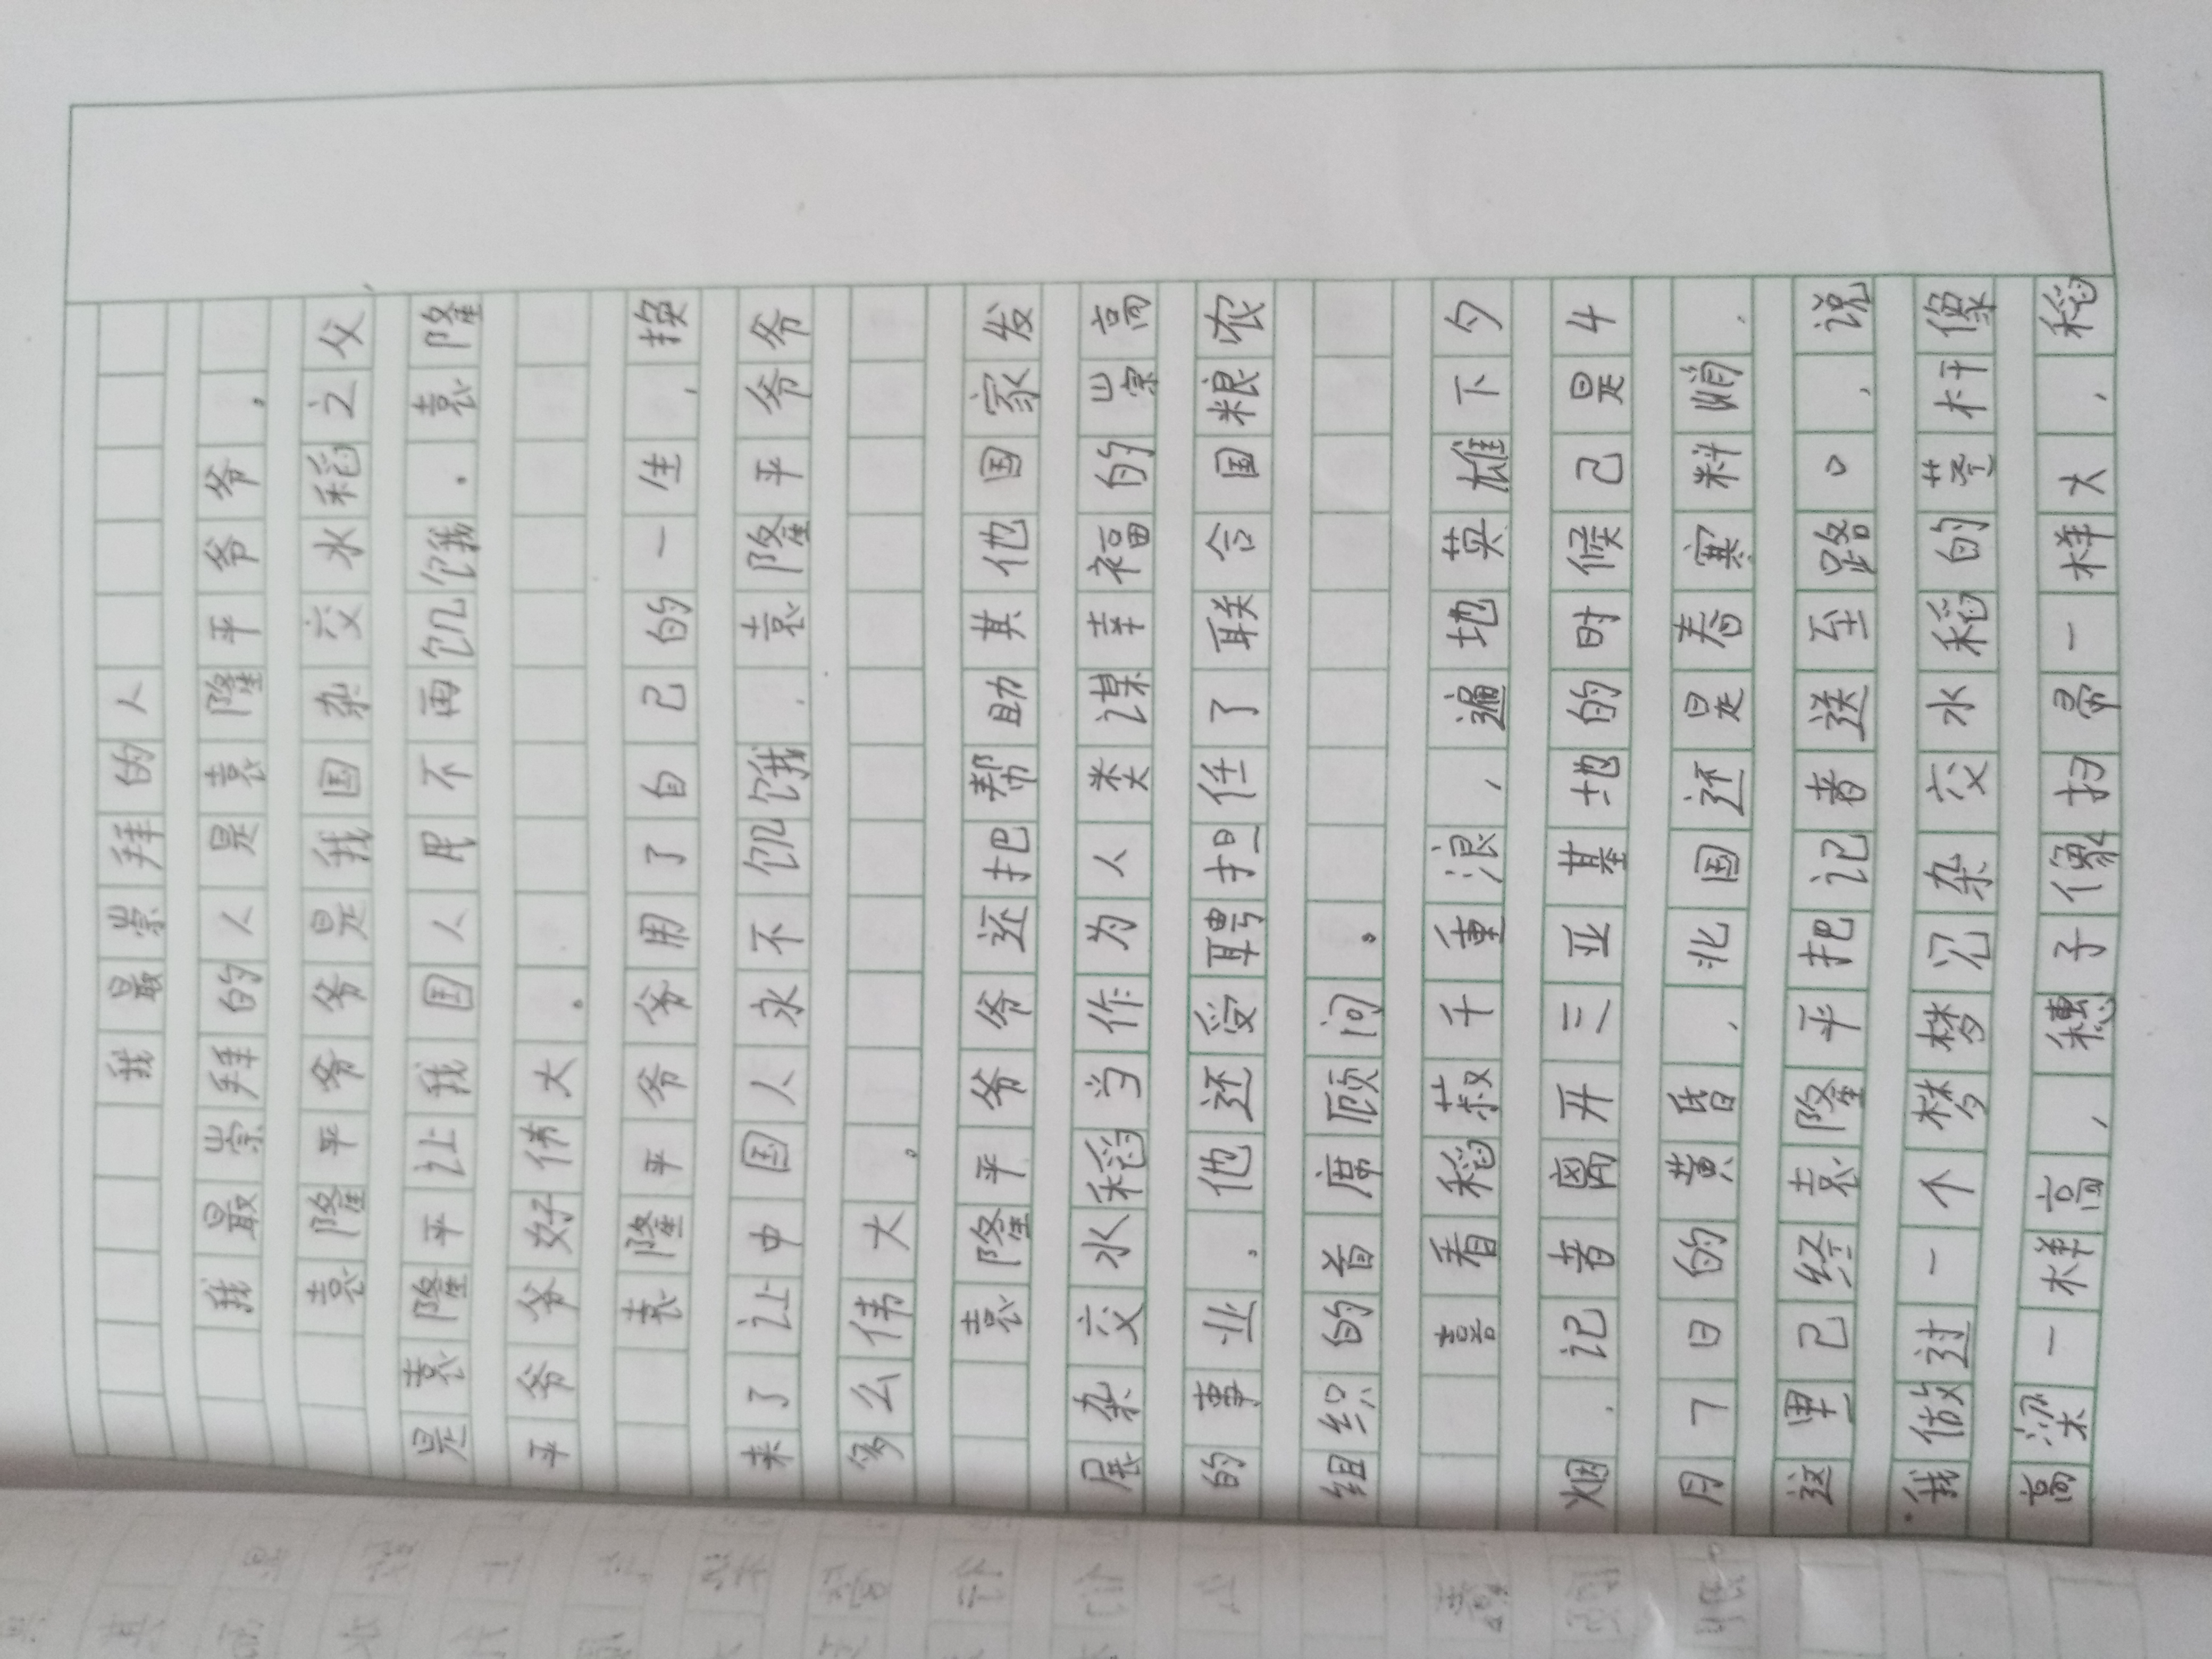 我最崇拜的人
我最崇拜的人是袁隆平爷爷。
袁隆平爷爷是我国杂交水稻之父,
是袁隆平让我国人民不再饥饿.袁隆
平爷爷好伟大。
袁隆平爷爷用了自己的一生,换
来了让中国人永不饥饿.袁隆平爷爷
多么伟大。
袁隆平爷爷还把帮助其他国家发
展杂交水稻当作为人类谋幸福的崇高
的事业.他还受聘担任了联合国粮农
组织的首席顾问。
喜看稻菽千重浪,遍地英雄下夕
烟.记者离开三亚基地的时候已是4
月7日的黄昏.北国还是春寒料峭.
这里已经袁隆平把记者送至路口,说
我做过一个梦梦见杂交水稻的茎杆像
高梁一样高,穗子像扫帚一样大,稻